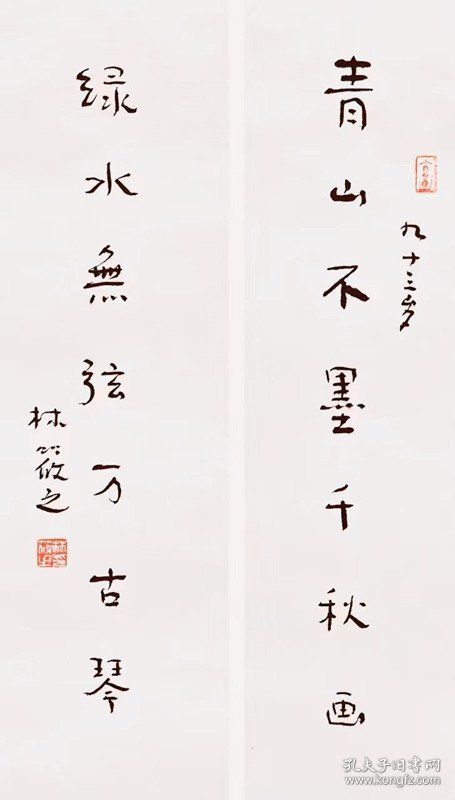 青山不墨千秋画
九十三岁
绿水無弦万古琴
林筱之
孔夫子旧书网
www.kongfz.com